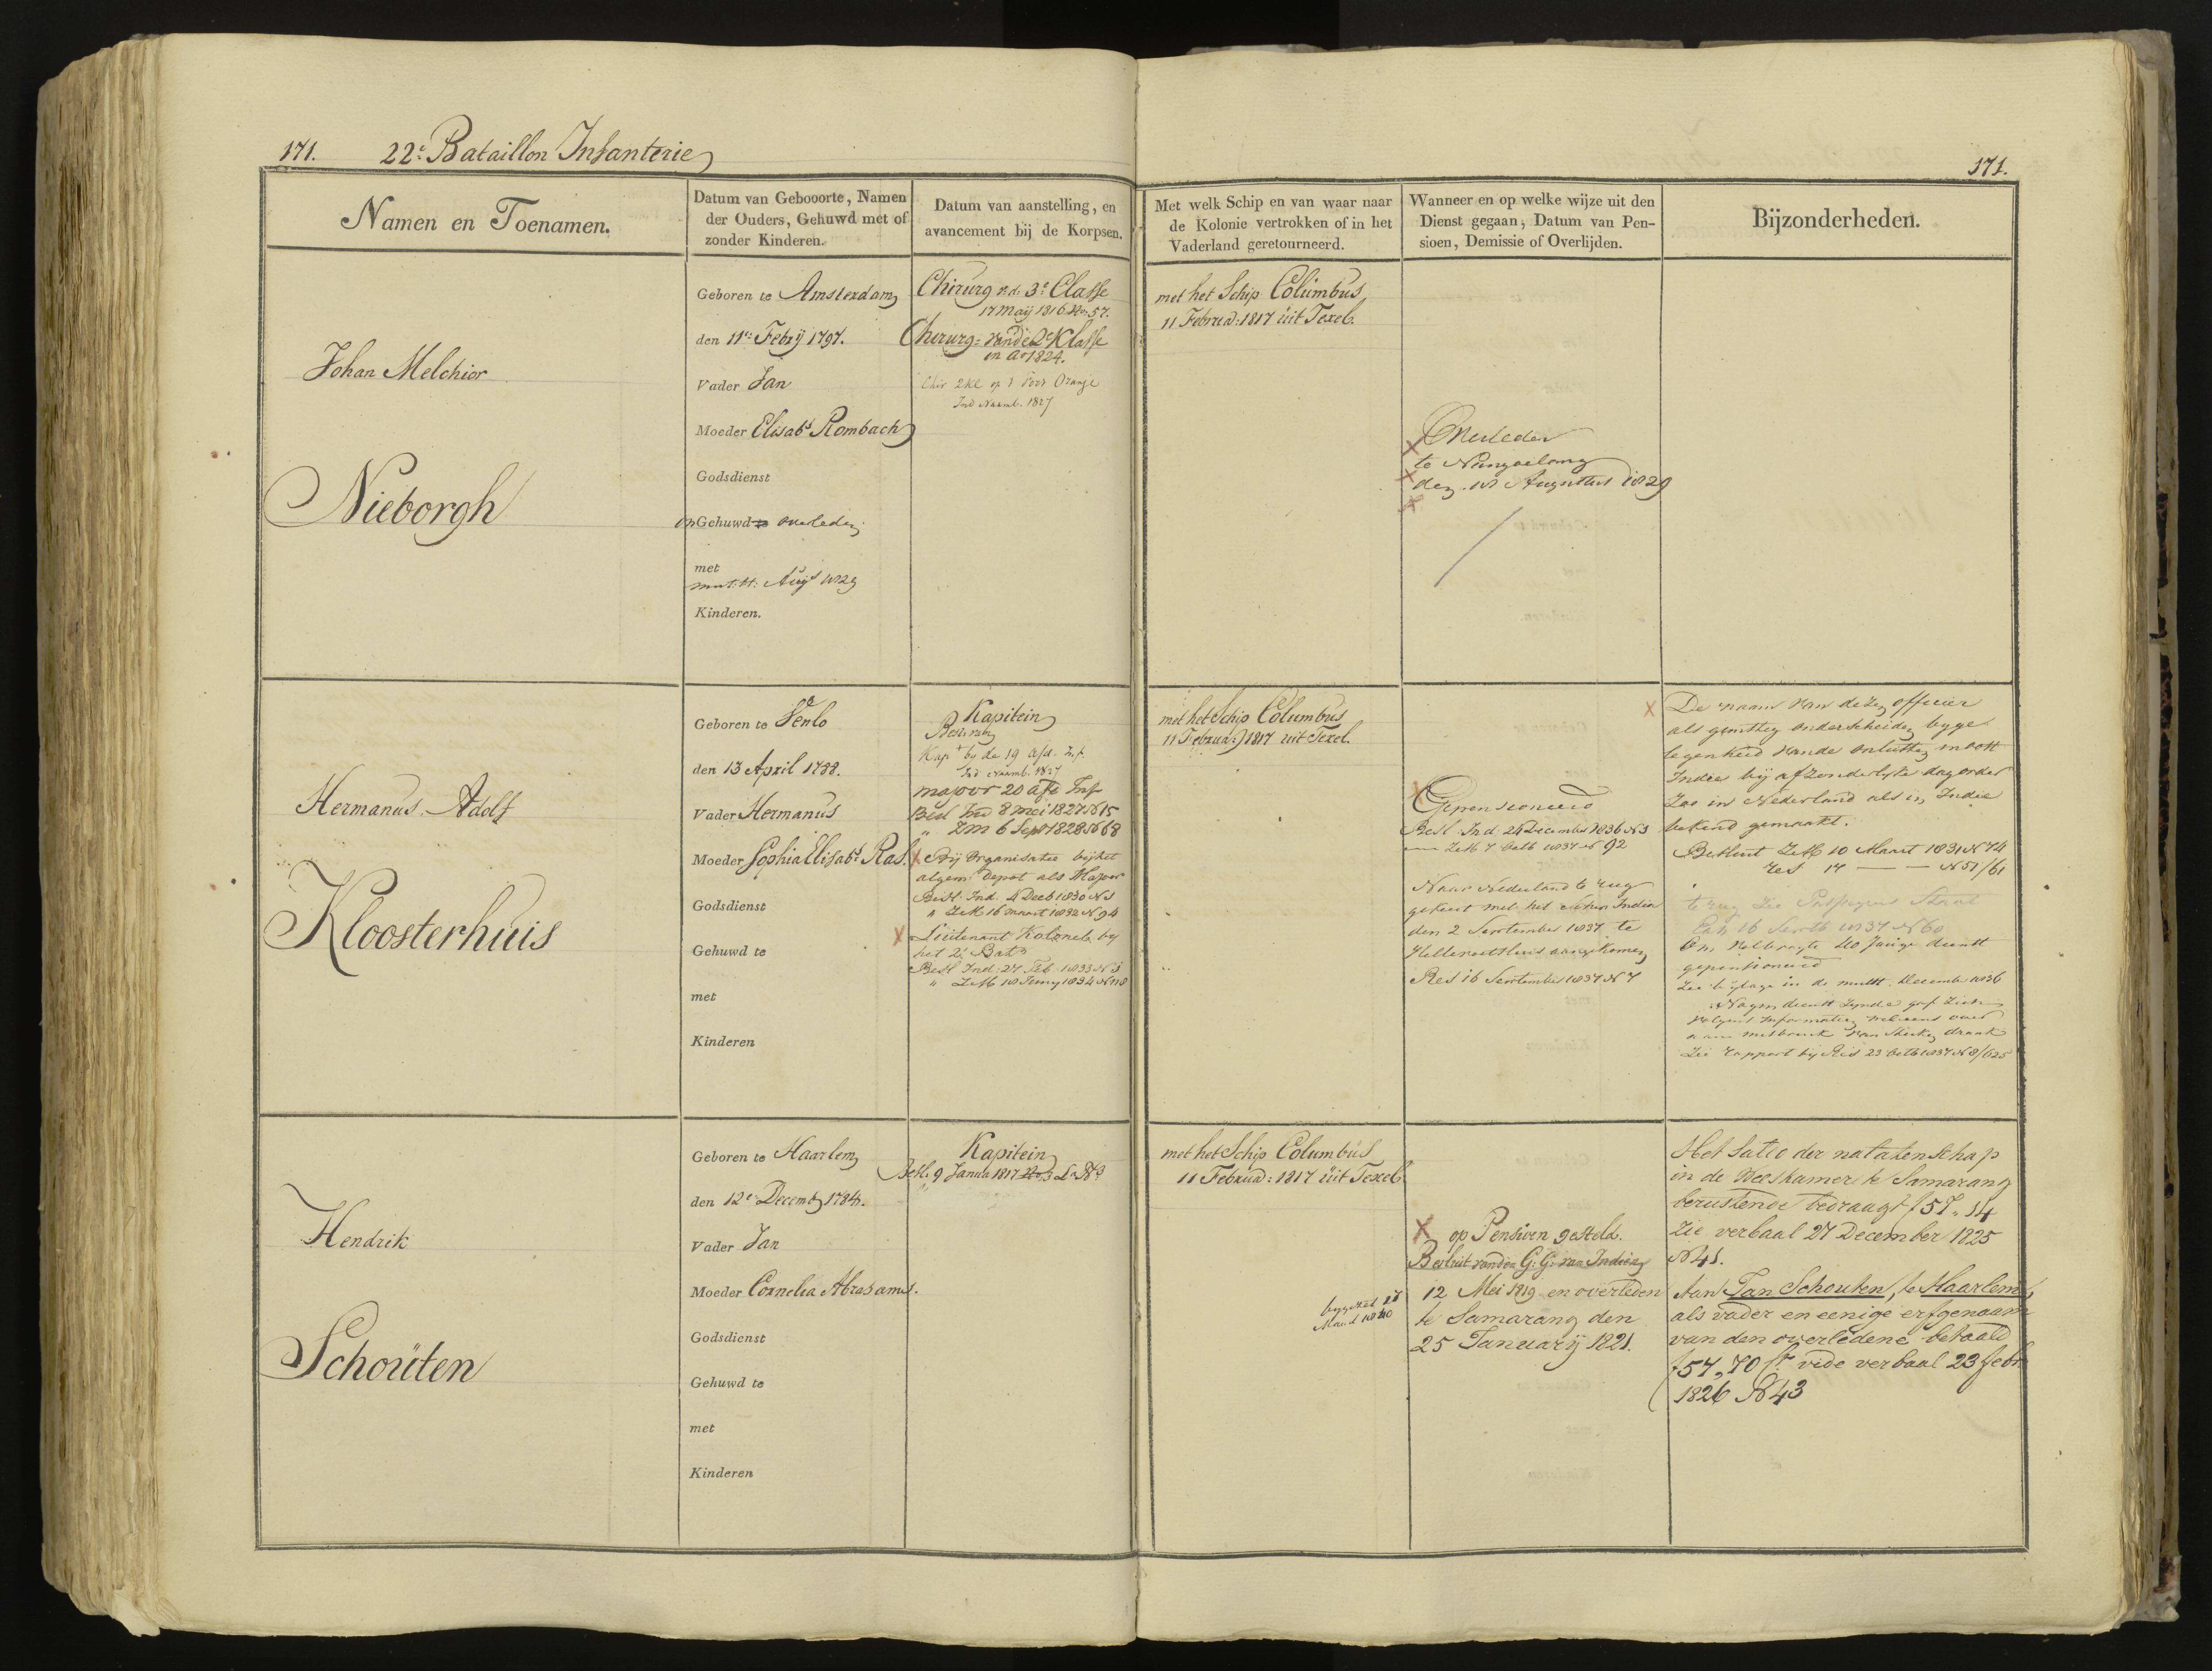 171. 22e Bataillon Infanterie
171.
Namen en Toenamen.
Datum van Gebooorte, Namen
der Ouders, Gehuwd met of
zonder Kinderen.
Datum van aanstelling, en
avancement bij de Korpsen.
Met welk Schip en van waar naar
de Kolonie vertrokken of in het
Vaderland geretourneerd.
Wanneer en op welke wijze uit den
Dienst gegaan, Datum van Pen-
sioen, Demissie of Overlijden.
Bijzonderheden.
Johan Melchior
Nieborgh
Geboren te Amsterdam
den 11e Febrij 1797.
Vader Jan
Moeder Elisabt Rombach
Godsdienst
Gehuwd te overleden
met
Augs 1829
Kinderen.
Chirurg v.d. 3e Classe
17 Maij 1816 No. 57.
Chirurg= van de 2e Klasse
in Ao 1824.
Chir 2 Kl op 's Oranje
Ind Naaml. 1827
met het Schip Columbus
11 Februa: 1817 uit Texel.
Overleden
te
den 18 Augustus 1829
Hermanus Adolf
Kloosterhuis
Geboren te Venlo
den 13 April 1788.
Vader Hermanus
Moeder Sophia Elisabt Ras.
Godsdienst
Gehuwd te
met
Kinderen
Kapitein
Kapt by de 19 afd. Inf.
Ind Naaml. 1827
majoor 20 afd Inf
Besl Ind 8 mei 1827 N 15
" ZM 6 Sept 1828 N 68
Bij Organisatie bij het
algem: Depot als Majoor
Besl. Ind. 4 Decb 1830 N 1
" ZM 16 maart 1832 N 94
Luitenant Kolonel by
het 2e Bat
Besl Ind: 27 Feb 1833 N 3
" ZM 18 Juny 1834 N 118
met het Schip Columbus
11 Februa: 1817 uit Texel.
Gepensioneerd
Besl. Ind. 24 December 1836 N 3
ZM 7 Octb 1837 N 92
Naar Nederland te rug
gekeert met het schip India
den 2 September 1837 te
Hellevoetsluis aangekomen
Res 16 September 1837 N 7
De naam van dezen officier
als gunstig onderscheiden bijge
legenheid van de onlusten in oost
Indien bij afzonderlijke dagorder
Zoo in Nederland als in Indie
bekend gemaakt.
Besluit ZM 10 Maart 1831 N 74
Res 17 — — N 51/61
te rug Zie Staat
16 Septb 1837 N 60
volbragte 20 Jarige dienst
gepensioneerd
Zie bijlage in de December 1836
misbruik van Sterken drank
Zie rapport bij Res 23 Octb 1837 N 8/625
Hendrik
Schouten
Geboren te Haarlem
den 12e Decemb 1784.
Vader Jan
Moeder Cornelia Abrahams.
Godsdienst
Gehuwd te
met
Kinderen
Kapitein
Besl. 9 Janua 1817
met het Schip Columbus
11 Februa: 1817 uit Texel.
op Pensioen gesteld.
Besluit van den G: G: van Indien
12 Mei 1819 en overleden
te Samarang den
25 Januarij 1821.
Het Saldo der nalatenschap
in de Weeskamer te Samarang
berustende bedraagt f 57„14
Zie verbaal 27 December 1825
N 41.
Aan Jan Schouten, te Haarlem,
als vader en eenige erfgenaam
van den overledene betaald
f 57„70 vide verbaal 23 Febr
1826 N 43